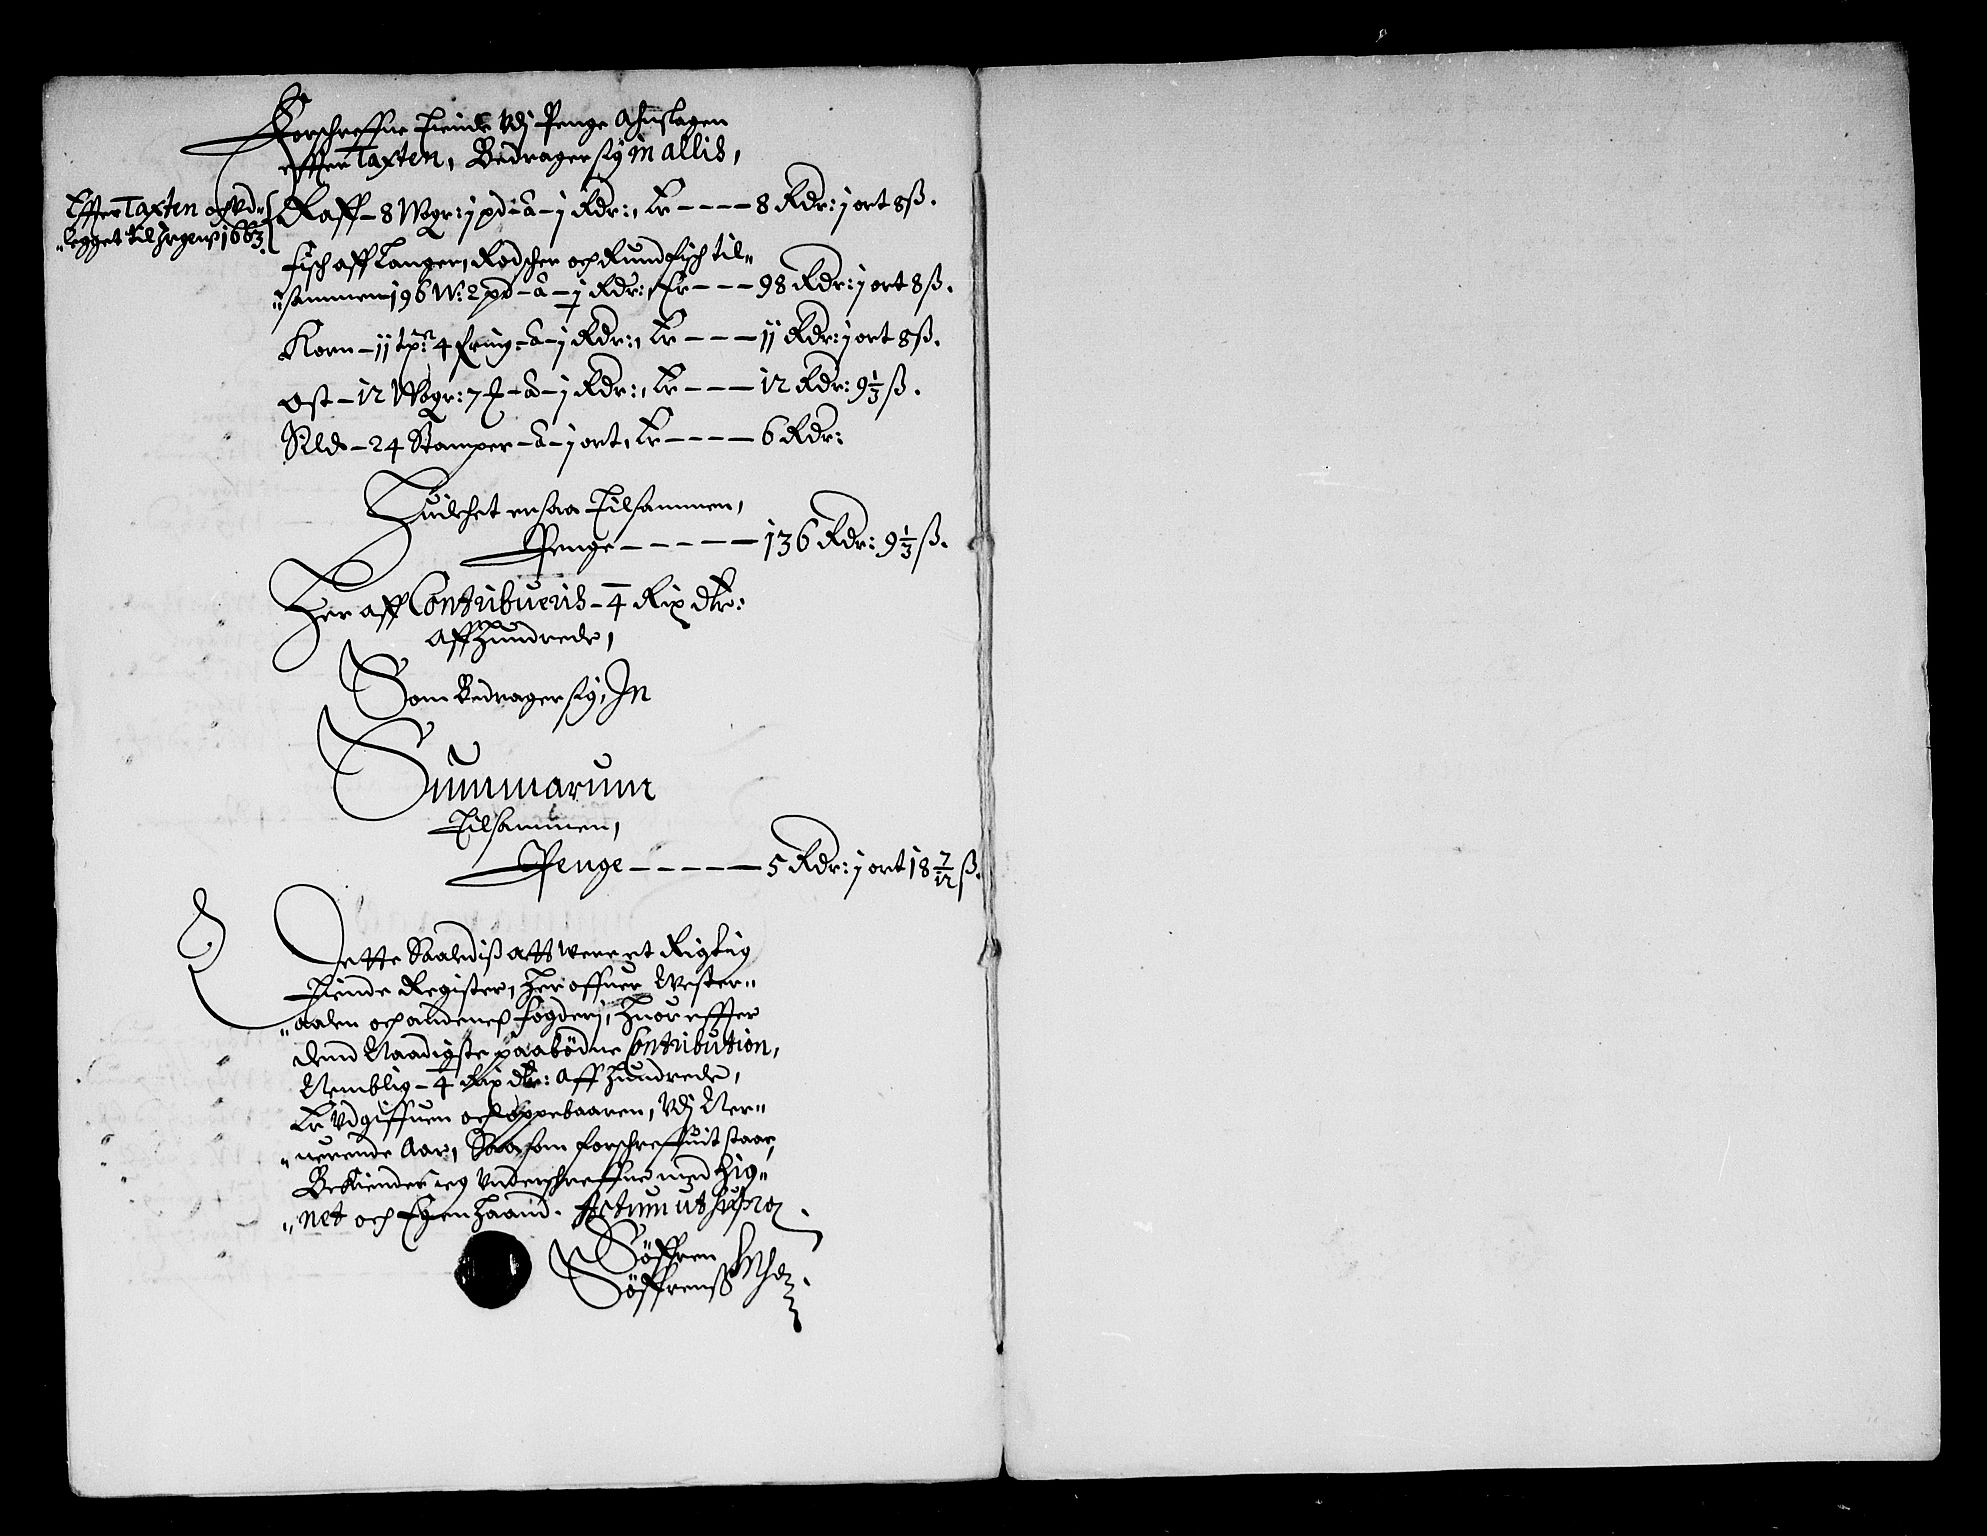 Forschreffne Tiende Vdj Penge Ahnslagen
effter Taxten, Bedrager sig in allis,
Effter Taxten och Vd-
legget til Irgens 1663
Raff - 8 Wogr: j pd - à - j Rdr:, Er - - - - 8 Rdr: j ort 8 ß.
Fisch aff Langer, Rodscher och Rundfisch til-
sammen 196 W: 2 pd - à - ½ Rdr:, Er - - - 98 Rdr: j ort 8 ß.
Korn - jj tpr 4 - à - j Rdr:, Er - - - jj Rdr: j ort 8 ß.
Ost - 12 Wogr: 7 - à - j Rdr:, Er - - - 12 Rdr: 9 1/3 ß.
Sild - 24 Stamper - à - j ort, Er - - - - 6 Rdr:
Huilchet er saa Tilsammen,
Penge - - - - - 136 Rdr: 9 1/3 ß.
Her aff Contribueris - 4 Rix dlr:
aff Hundrede,
Som Bedrager sig, In
Summarum
Tilsammen,
Penge - - - - - 5 Rdr: j ort 18 7/12 ß.
Dette Saaledis att were et Rigtig
Tiende Register, Her offuer Wester-
aalen och andenes fogderj, Huor effter
dend Naadigste paabödne Contribution,
Nemblig - 4 Rix dlr: aff Hundrede,
Er Vdgiffuen och oppebaaren, Vdj Ner-
uerende Aar, Saa som forschreffuit staar,
Bekiender ieg Vnderschreffne med Zig-
net och Egen Haand. Actum ut supra.
Söffren
Söffrenß